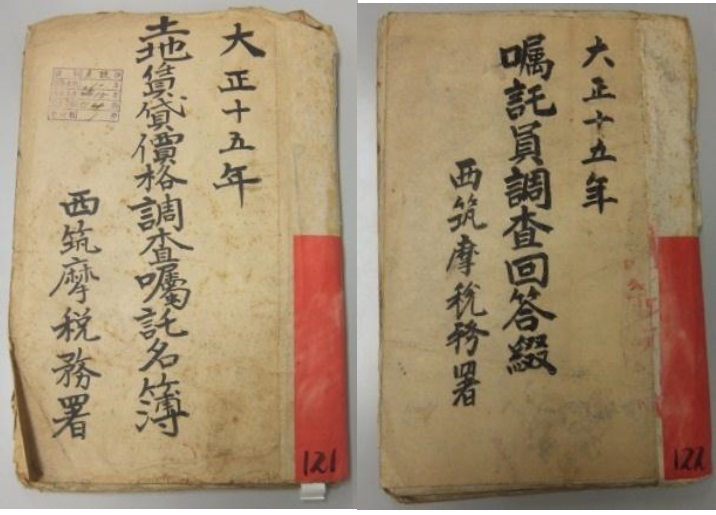 大正十五年
土地賃貸價格調査嘱託名簿
西筑摩税務署
121
大正十五年
嘱託員調査回答綴
西筑摩税務署
122